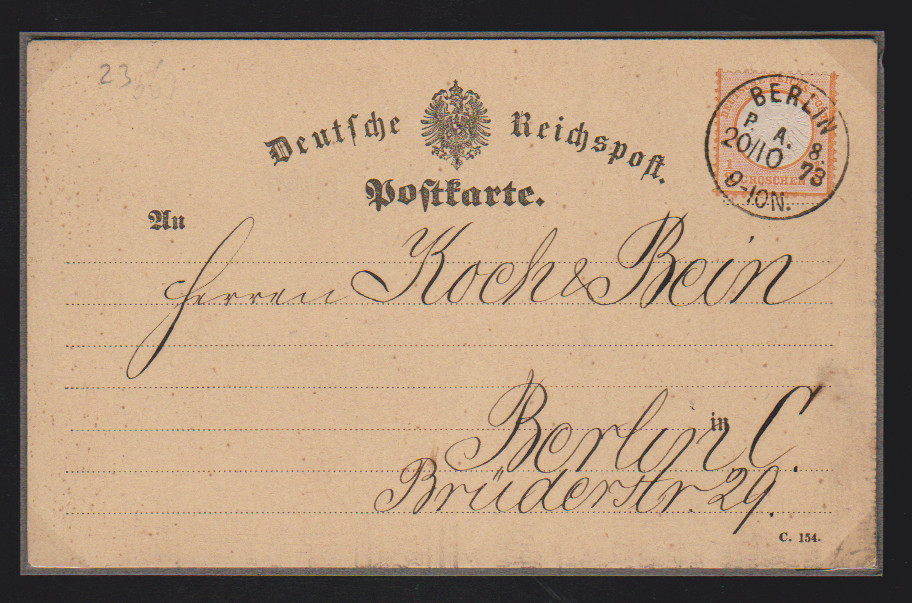 23
Deutsche Reichspost.
Postkarte.
BERLIN
P. A. 8
20/10 73
9-10N.
1/2 GROSCHEN
An
Herren Koch & Bein
in
Berlin C.
Brüderstr. 29.
C. 154.